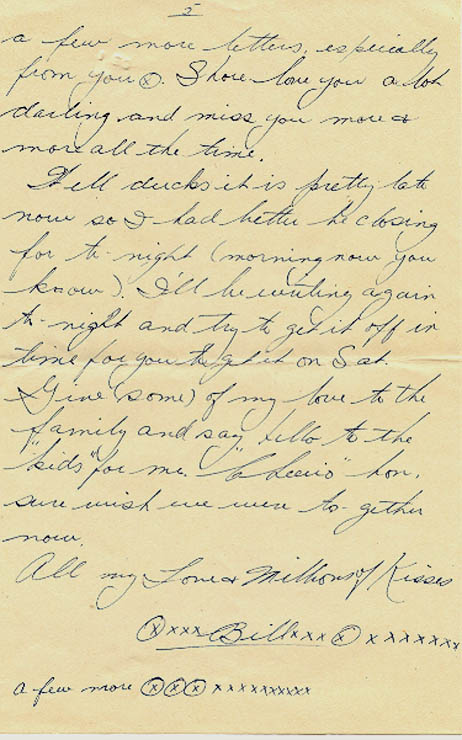 5
a few more letters, especially
from you ⓧ. I shore love you a lot
darling and miss you more &
more all the time.
Well ducks it is pretty late
now so I had better be closing
for to-night (morning now you
know). I'll be writing again
to-night and try to get it off in
time for you to get it on Sat.
Give (some) of my love to the
family and say hello to the
"kids" for me. "Cheerio" hon.
sure wish we were to-gether
now.
All my Love & Millions of Kisses
ⓧxxx Bill xxx ⓧ x xxxxxxx
a few more ⓧⓧⓧ xxxxxxxxxx